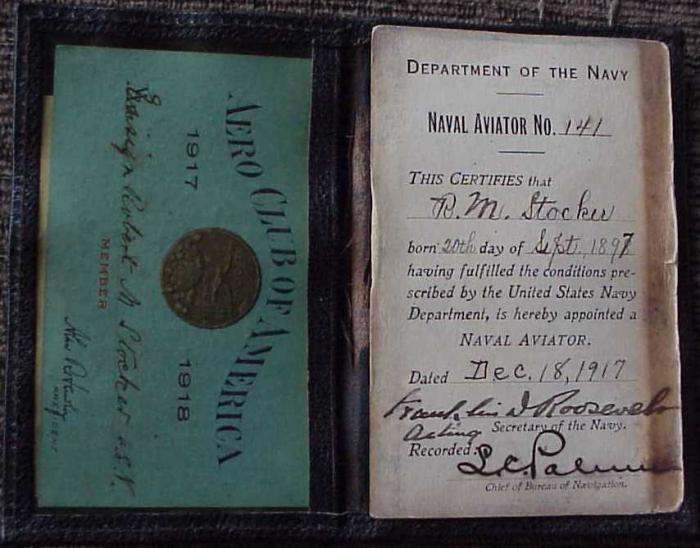 AERO CLUB OF AMERICA
1917 1918
Ensign Robert M Stocker U.S.N.
MEMBER
PRESIDENT
DEPARTMENT OF THE NAVY
NAVAL AVIATOR NO. 141
THIS CERTIFIES that
R. M. Stocker
born 20th day of Sept. 1897
having fulfilled the conditions pre-
scribed by the United States Navy
Department, is hereby appointed a
NAVAL AVIATOR.
Dated Dec. 18, 1917
Franklin D Roosevelt
Acting Secretary of the Navy.
Recorded.
L.C. Palmer
Chief of Bureau of Navigation.